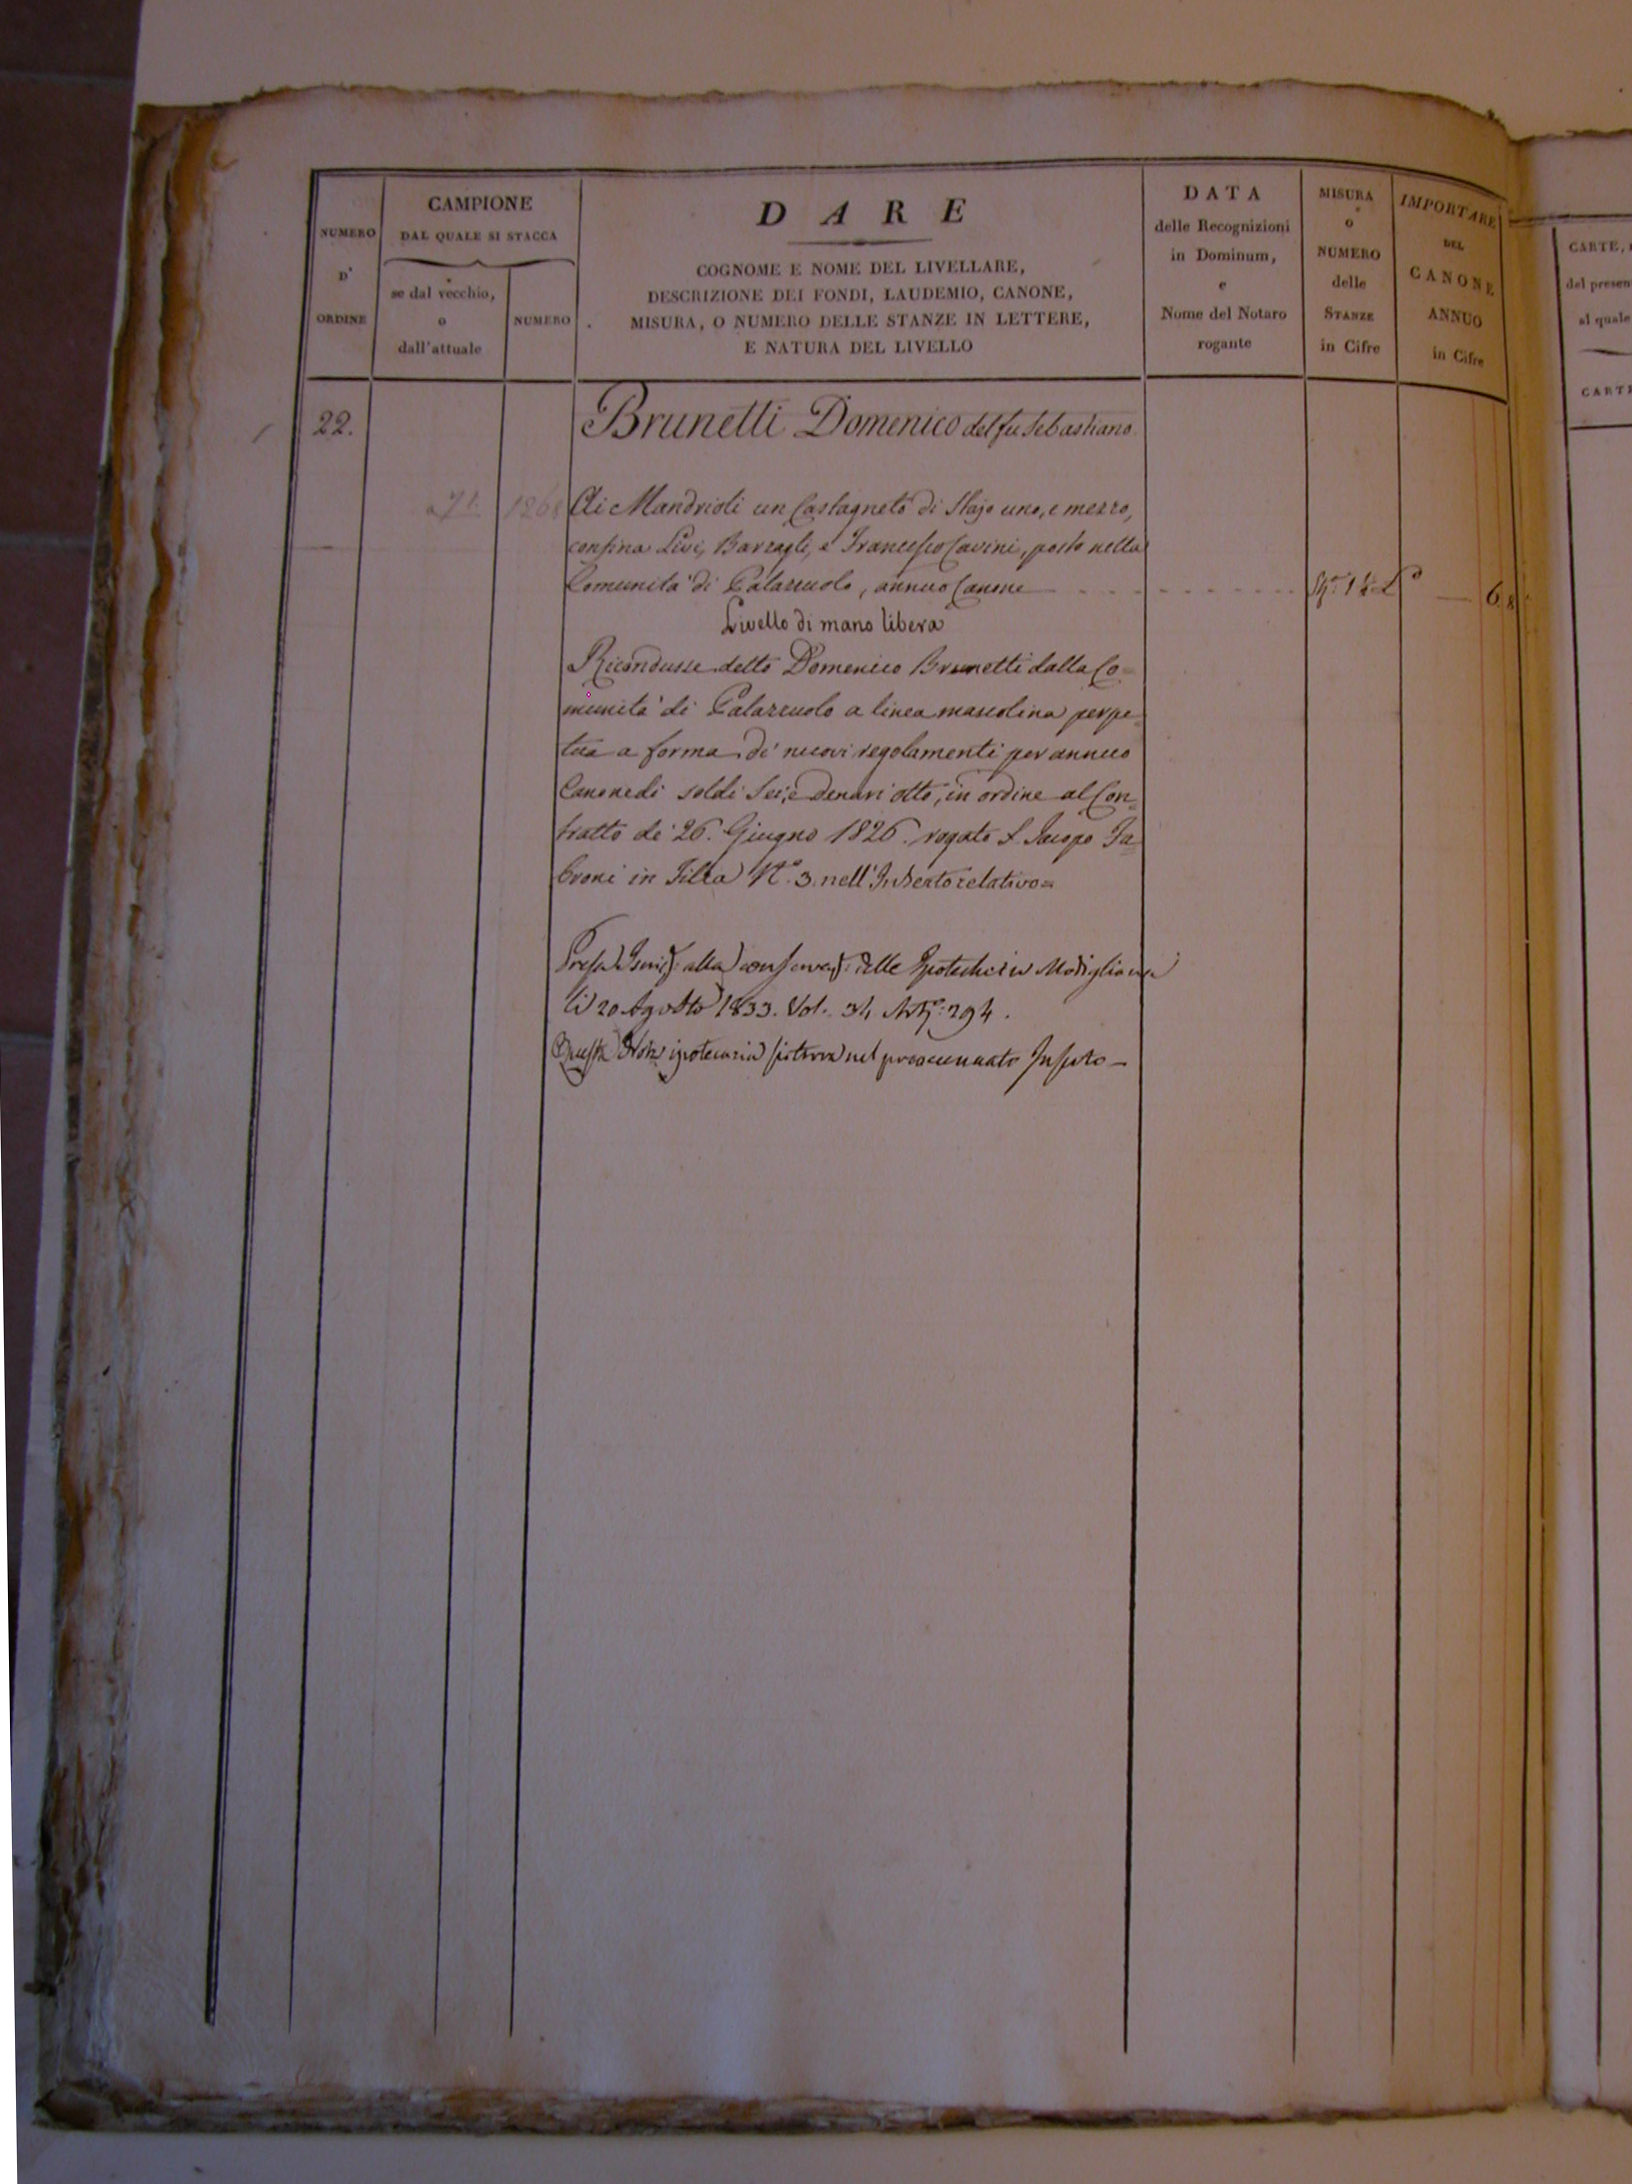 NUMERO
D'
ORDINE
CAMPIONE
DAL QUALE SI STACCA
se dal vecchio,
o
dall'attuale
NUMERO
DARE
COGNOME E NOME DEL LIVELLARE,
DESCRIZIONE DEI FONDI, LAUDEMIO, CANONE,
MISURA, O NUMERO DELLE STANZE IN LETTERE,
E NATURA DEL LIVELLO
DATA
delle Recognizioni
in Dominum,
e
Nome del Notaro
rogante
MISURA
o
NUMERO
delle
STANZE
in Cifre
IMPORTARE
DEL
CANONE
ANNUO
in Cifre
CARTE,
del presen
al quale
CARTE
22.
Brunetti Domenico del fu Sebastiano
1868 Ai Mandrioli un Castagneto di Stajo uno, e mezzo,
confina Livi, Barzagli, e Francesco Cavini, posto nella
Comunità di Palazzuolo, annuo Canone
6 8
Livello di mano libera
Ricondusse detto Domenico Brunetti dalla Co=
munità di Palazzuolo a linea mascolina perpe=
tua a forma de' nuovi regolamenti per annuo
Canone di soldi Sei, e Denari otto, in ordine al Con=
tratto de' 26. Giugno 1826. rogato S. Jacopo Fa=
broni in Filza N.º 3. nell'Inserto relativo=
Presa Iscriz: alla conservaz: delle Ipoteche in Modigliana
li 20 Agosto 1833. Vol. 34 Art.º: 294.
Questa Nota ipotecaria si trova nel preaccennato Inserto —